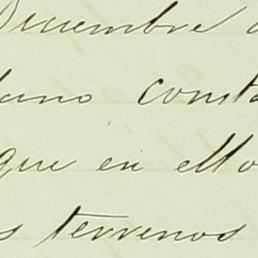 Diciembre d
lano consta
que en ello
s terrenos